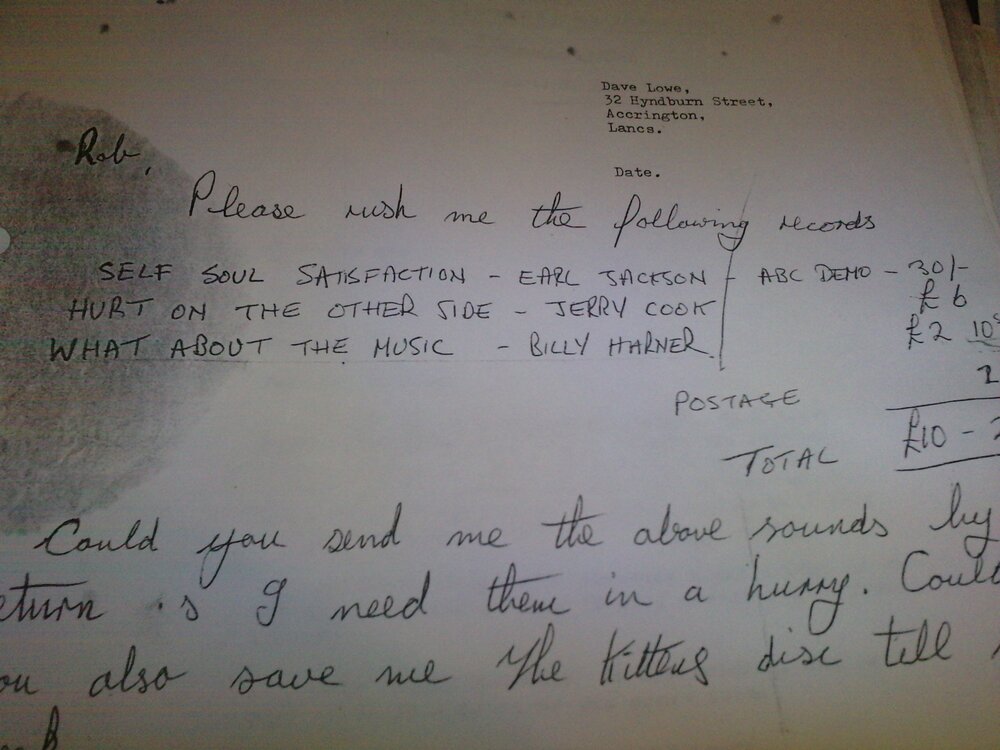 Dave Lowe,
32 Hyndburn Street,
Accrington,
Lancs.
Date.
Rob,
Please rush me the following records
SELF SOUL SATISFACTION - EARL JACKSON - ABC DEMO - 30/-
HURT ON THE OTHER SIDE - JERRY COOK £6
WHAT ABOUT THE MUSIC - BILLY HARNER. £2 10
POSTAGE 2
TOTAL £10 - 2
Could you send me the above sounds by
eturn 's I need them in a hurry. Coul
ou also save me The Kittens disc till